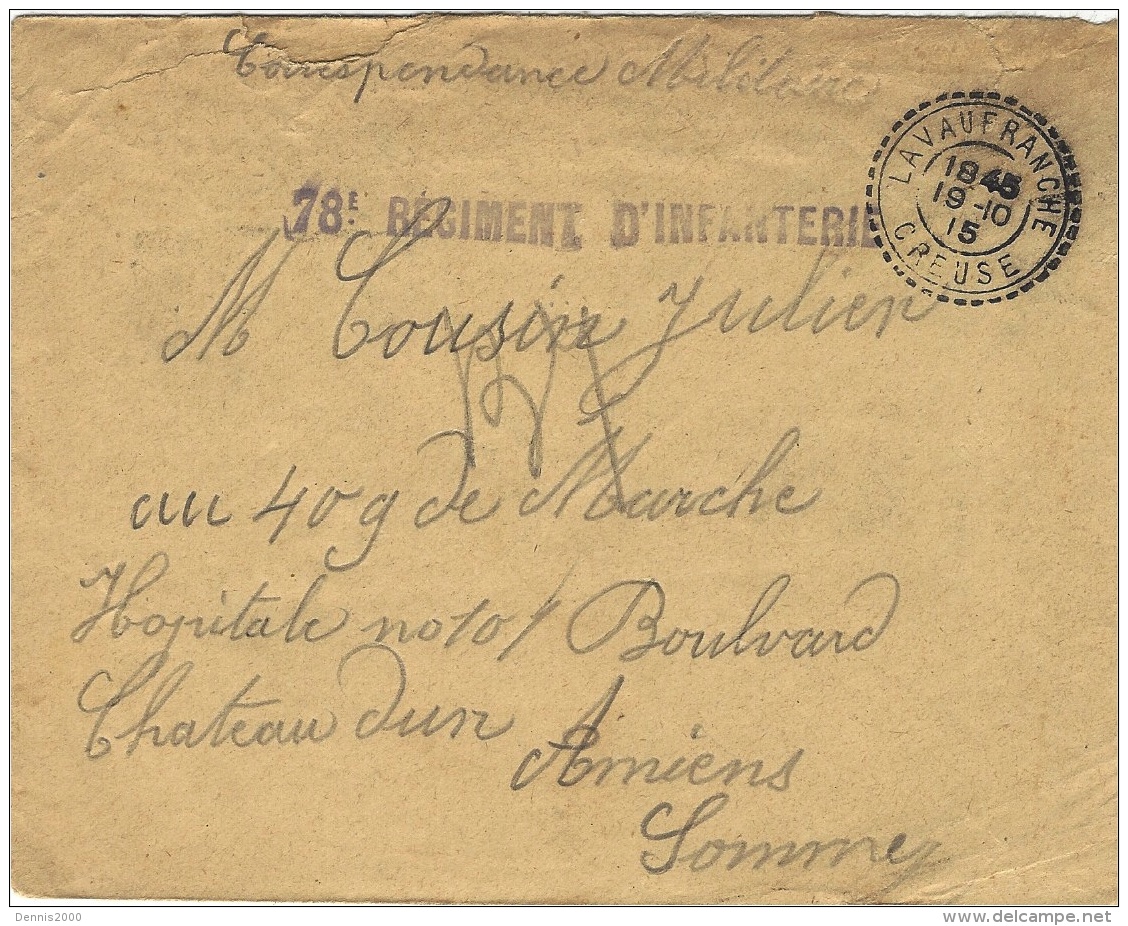 Correspondance Militaire
LAVAUFRANCHE
1845
19-10
15
CREUSE
78E REGIMENT D'INFANTERIE
M Cousin Julien
au 409 de Marche
Hopitale no 101 Boulvard
Chateau dun
Amiens
Somme
Dennis2000
delcampe.net